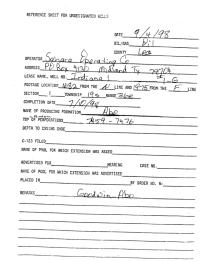 REFERENCE SHEET FOR UNDESIGNATED WELLS
DATE 9/4/98
OIL/GAS Oil
COUNTY Lea
OPERATOR Sonara Operating Co
ADDRESS PO Box Midland Tx
LEASE NAME, WELL NO. Indiana 1 - G
FOOTAGE LOCATION FROM THE N LINE AND FROM THE E LINE
SECTION TOWNSHIP 19S RANGE
COMPLETION DATE
NAME OF PRODUCING FORMATION Abo
TOP OF PERFORATIONS
DEPTH TO CASING SHOE
C-123 FILED
NAME OF POOL FOR WHICH EXTENSION WAS ASKED
ADVERTISED FOR HEARING CASE NO.
NAME OF POOL FOR WHICH EXTENSION WAS ADVERTISED
PLACED IN BY ORDER NO. R-
REMARKS Goodwin Abo